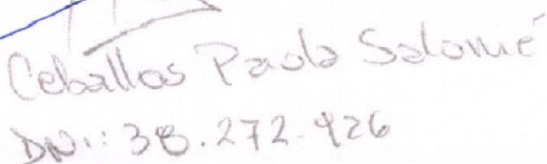 Ceballos Paola Salomé
DNI: 38.272.926